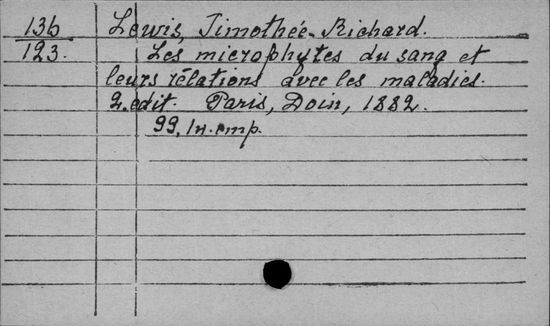 136 Lewis, Timothée-Richard.
123. Les microphytes du sang et
leurs rélations avec les maladies.
2. edit. Paris, Doin, 1882.
99, In. отр.